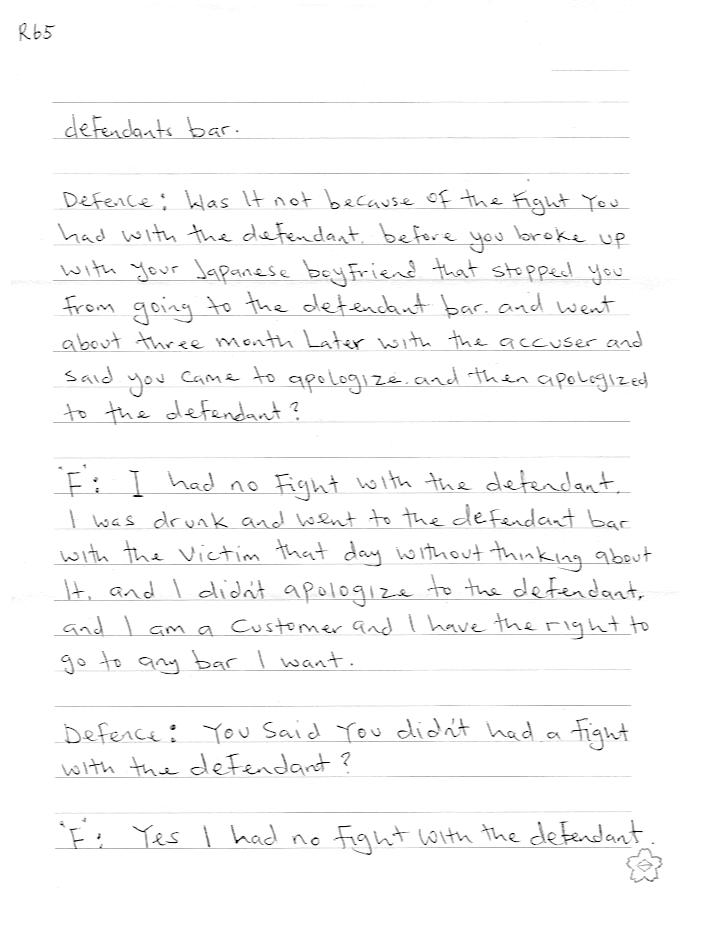 R65
defendants bar.
Defence: Was It not because of the Fight You
had with the defendant. before you broke up
with your Japanese boyfriend that stopped you
from going to the defendant bar. and went
about three month Later with the accuser and
said you came to apologize. and then apologized
to the defendant?
"F": I had no Fight with the defendant.
I was drunk and went to the defendant bar
with the victim that day without thinking about
It. and I didn't apologize to the defendant.
and I am a Customer and I have the right to
go to any bar I want.
Defence: You Said You didn't had a fight
with the defendant?
"F": Yes I had no fight with the defendant.